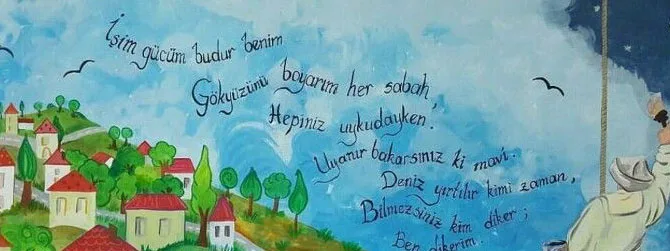 İşim gücüm budur benim
Gökyüzünü boyarım her sabah,
Hepiniz uykudayken.
Uyanır bakarsınız ki mavi.
Deniz yırtılır kimi zaman,
Bilmezsiniz kim diker;
Ben dikerim.